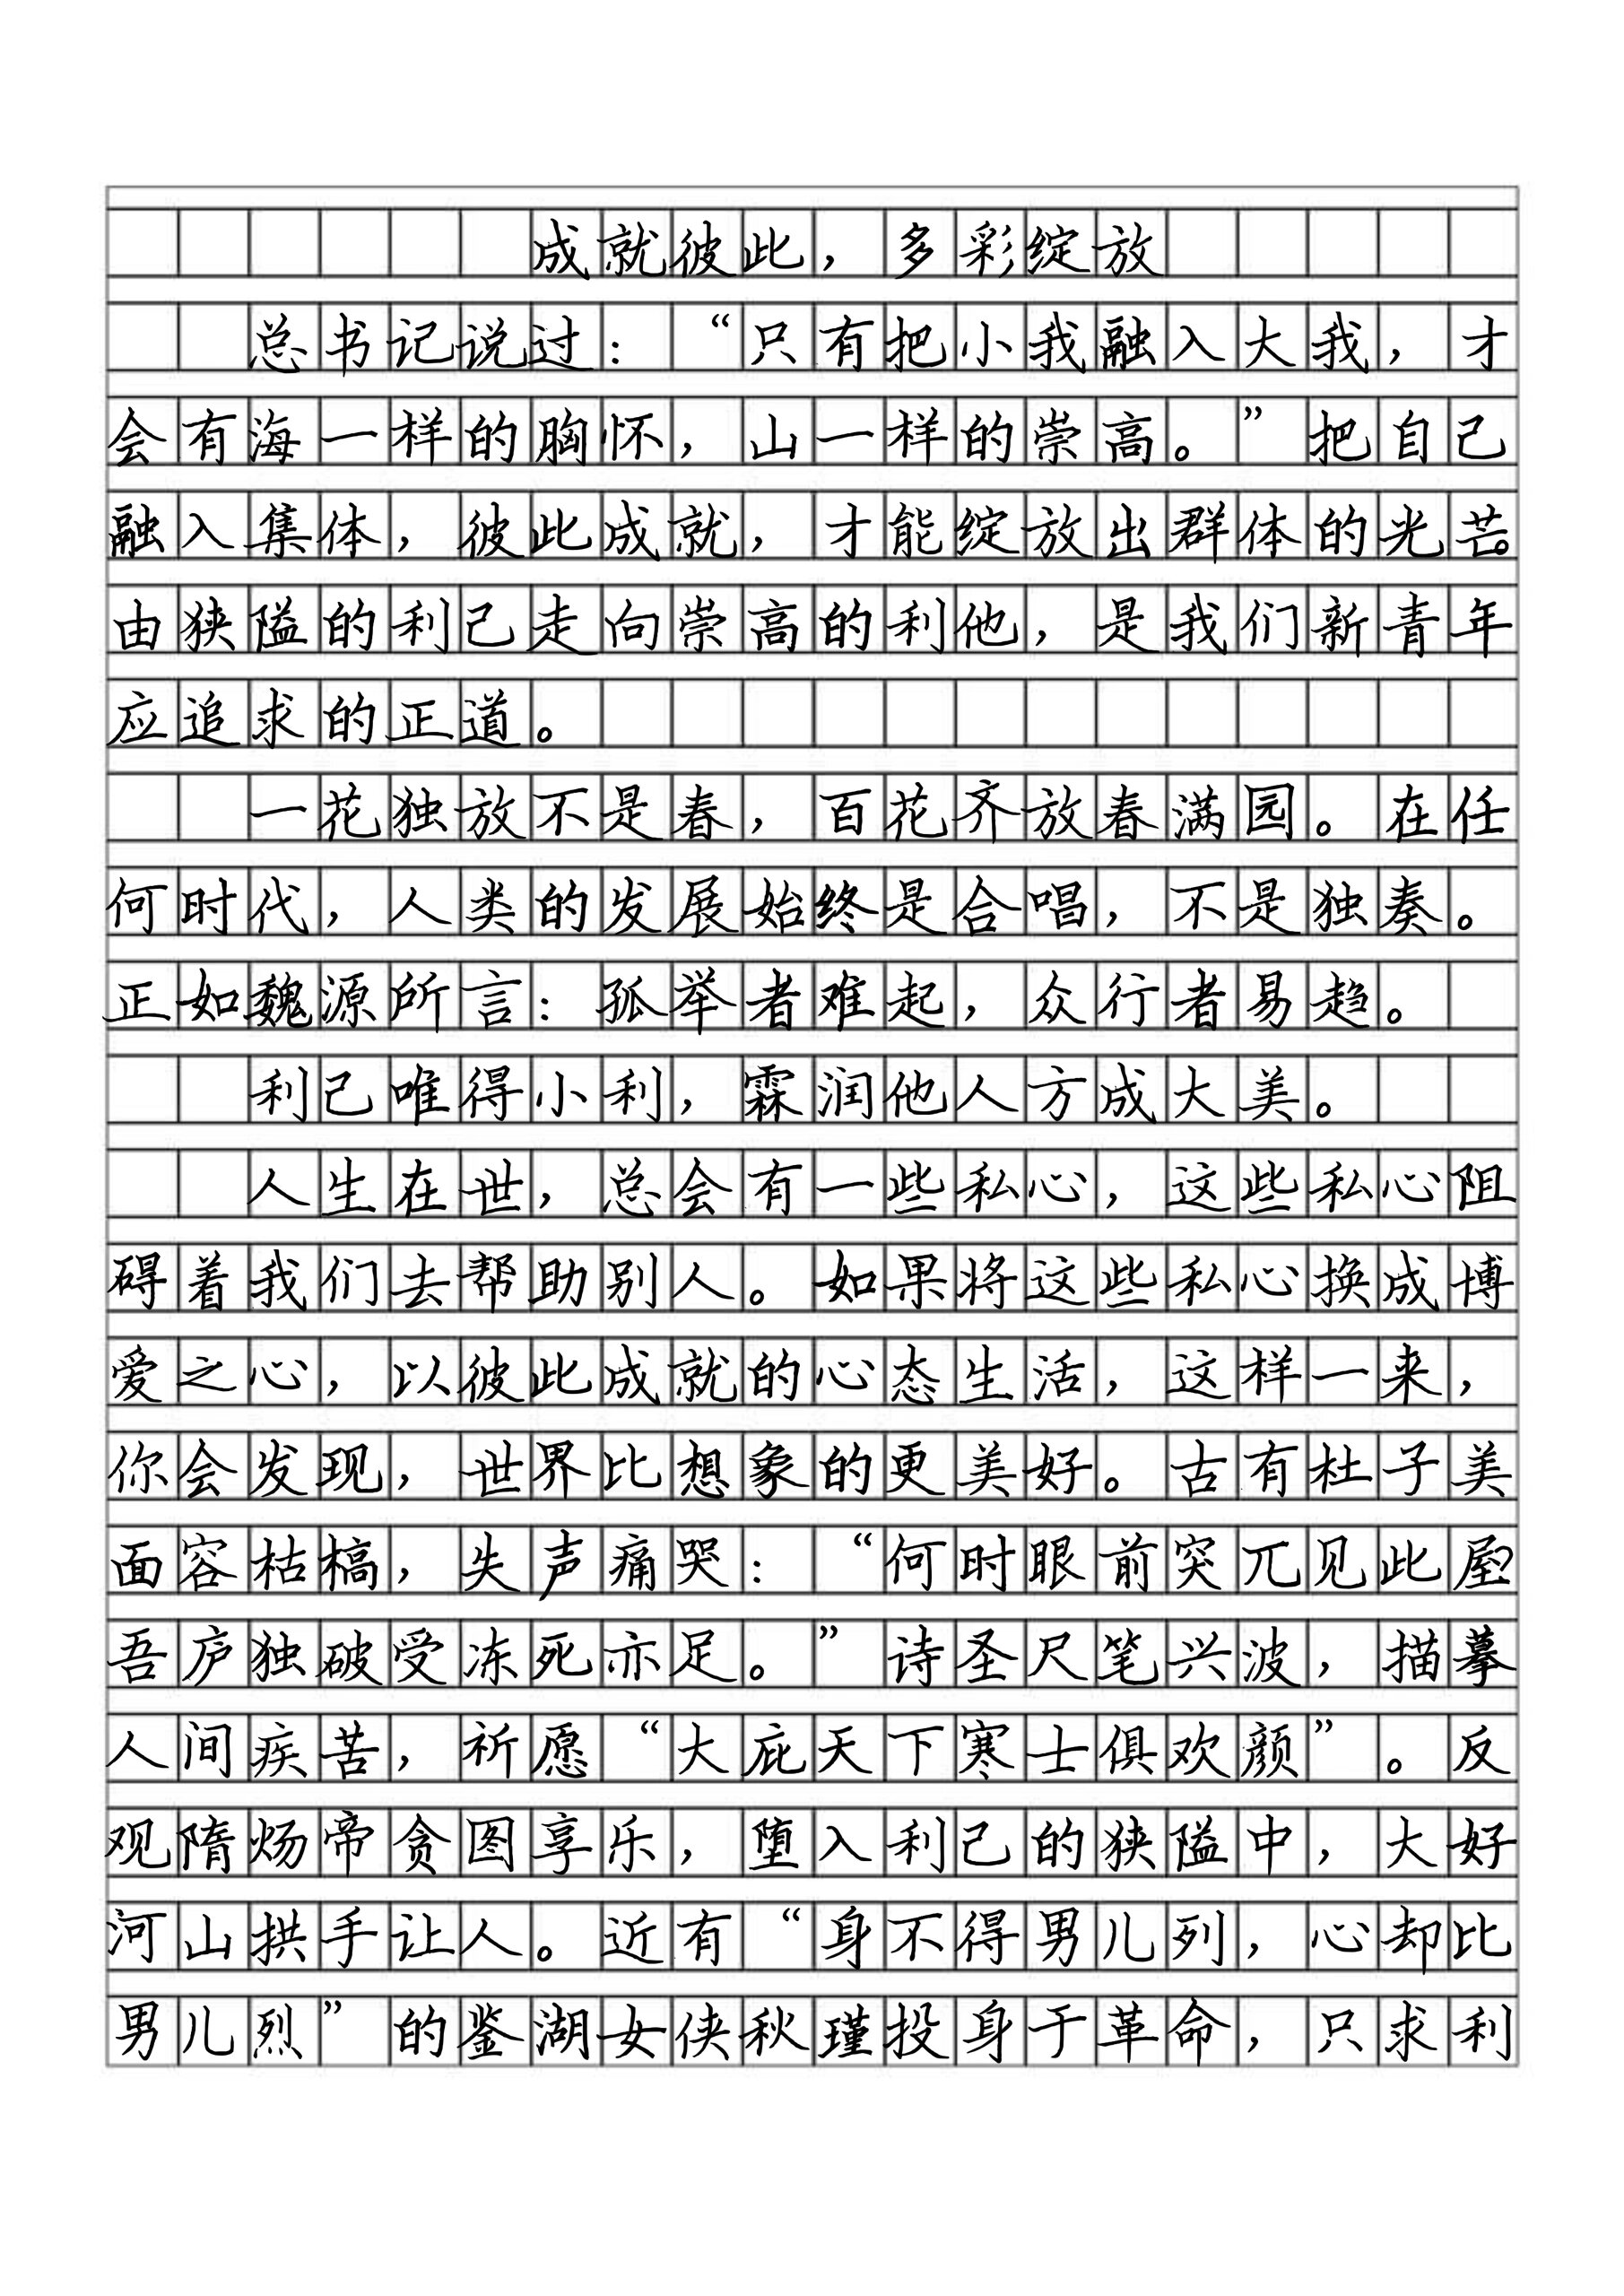 成就彼此，多彩绽放
总书记说过：“只有把小我融入大我，才
会有海一样的胸怀，山一样的崇高。”把自己
融入集体，彼此成就，才能绽放出群体的光芒。
由狭隘的利己走向崇高的利他，是我们新青年
应追求的正道。
一花独放不是春，百花齐放春满园。在任
何时代，人类的发展始终是合唱，不是独奏。
正如魏源所言：孤举者难起，众行者易趋。
利己唯得小利，霖润他人方成大美。
人生在世，总会有一些私心，这些私心阻
碍着我们去帮助别人。如果将这些私心换成博
爱之心，以彼此成就的心态生活，这样一来，
你会发现，世界比想象的更美好。古有杜子美
面容枯槁，失声痛哭：“何时眼前突兀见此屋？
吾庐独破受冻死亦足。”诗圣尺笔兴波，描摹
人间疾苦，祈愿“大庇天下寒士俱欢颜”。反
观隋炀帝贪图享乐，堕入利己的狭隘中，大好
河山拱手让人。近有“身不得男儿列，心却比
男儿烈”的鉴湖女侠秋瑾投身于革命，只求利